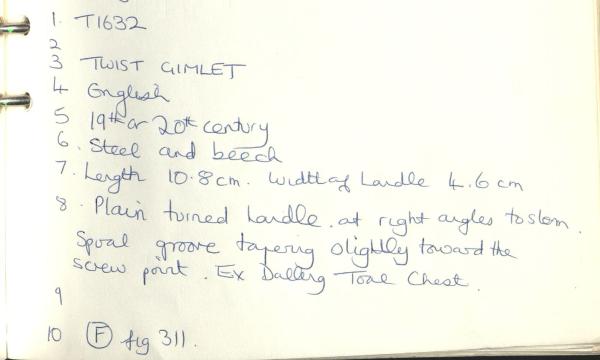 1. T1632
2
3 TWIST GIMLET
4 English
5 19th or 20th century
6. Steel and beech
7. Length 10.8cm. Width of handle 4.6 cm
8. Plain turned handle at right angles to stem.
Spiral groove tapering slightly toward the
screw point. Ex Dalling Tool Chest.
9
10 (F) fig 311.